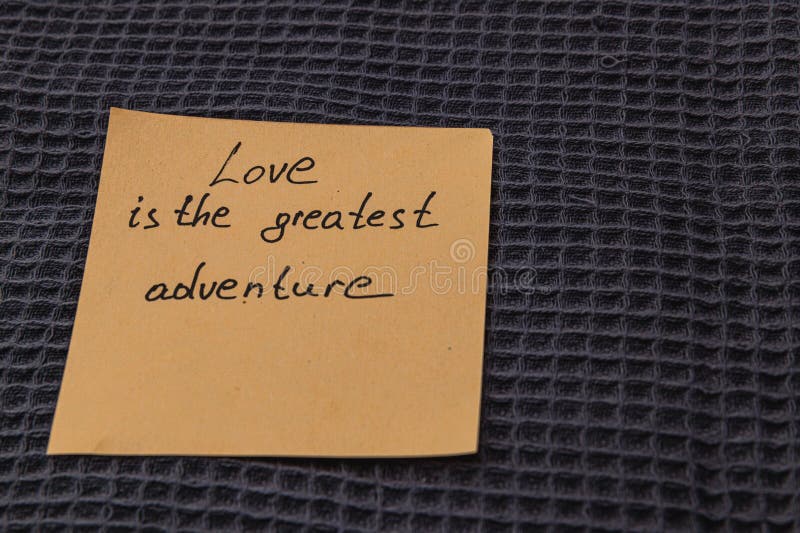 Love
is the greatest
adventure
dreamstime